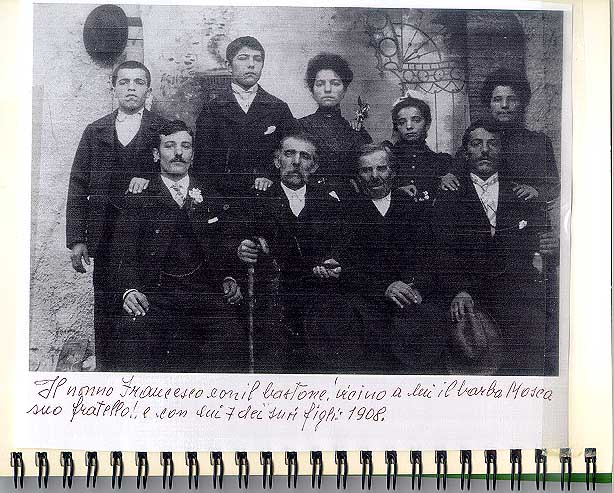 Il nonno Francesco con il bastone, vicino a lui il barba Mosca
suo fratello!, e con lui 7 dei suoi figli: 1908.